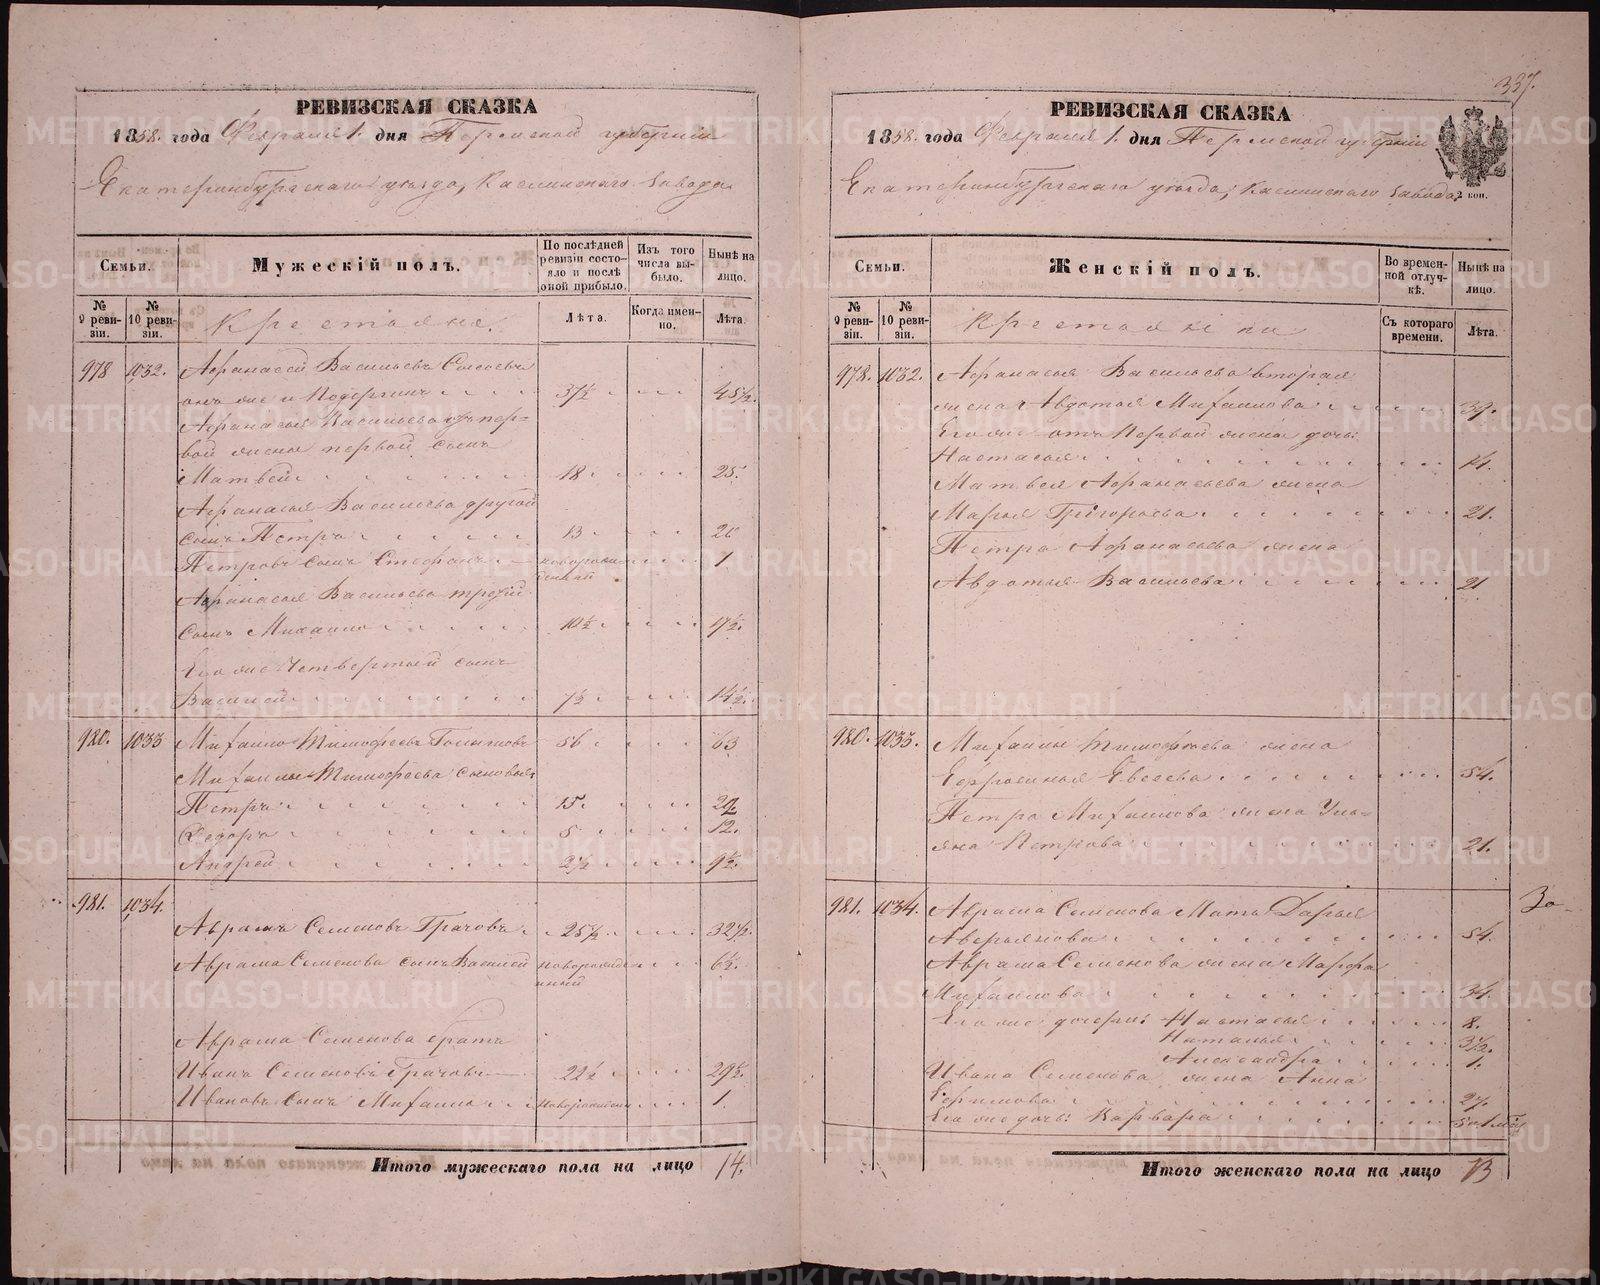 337.
РЕВИЗСКАЯ СКАЗКА
1858. года Февраля 1. дня Пермской губернии
Екатеринбургскаго уезда, Каслинскаго завода
Семьи.
Мужескій полъ.
По послѣдней ревизіи состояло и послѣ оной прибыло.
Изъ того числа выбыло.
Нынѣ на лицо.
№ 9 ревизіи.
№ 10 ревизіи.
Крестьяне.
Лѣта.
Когда именно.
Лѣта.
978 1032. Афанасей Васильевъ
онъ же и 37½ 45½.
Афанасья Васильева отъ пер-
вой жены первой сынъ
Матвей 18 25.
Афанасья Васильева другой
сынъ Петръ 13 20
Петровъ сынъ Стефанъ новорожденный 1.
Афанасья Васильева третій
сынъ Михаило 10½ 17½.
Его же четвертый сынъ
Василей 7½ 14½.
980. 1033 Михайло Тимофеевъ 56 63
Михайлы Тимофеева сыновья
Петръ 15. 22.
Федоръ 5 12.
Андрей 2½ 9½.
981. 1034. Аврамъ Семеновъ Грачовъ 25½ 32½.
Аврама Семенова сынъ Василей новорожденный 6½.
Аврама Семенова братъ
Иванъ Семеновъ Грачовъ 22½ 29½.
Ивановъ сынъ Михаило новорожденный 1.
Итого мужескаго пола на лицо 14.
РЕВИЗСКАЯ СКАЗКА
1858. года Февраля 1. дня Пермской губерніи
Екатеринбургскаго уезда, Каслинскаго завода
2 коп.
Семьи.
Женскій полъ.
Во временной отлучкѣ.
Нынѣ на лицо.
№ 9 ревизіи.
№ 10 ревизіи.
Крестьянки
Съ котораго времени.
Лѣта.
978. 1032. Афанасья Васильева вторая
жена Авдотья Михаилова 39.
Его же отъ первой жены дочь:
Настасья 14.
Матвея Афанасьева жена
Марья Григорьева 21.
Петра Афанасьева жена
Авдотья Васильева 21
980. 1033. Михаилы Тимофеева жена
Ефросинья Евсеева 54.
Петра Михаилова жена Улья-
яна Петрова 21.
981. 1034. Аврама Семенова мать Дарья
Аверьянова 54.
Аврама Семенова жена Марфа
Михаилова 34.
Его же дочери: Настасья 8.
Наталья 3½.
Александра 1.
Ивана Семенова жена Анна
Ефимова 27.
Его же дочь: Варвара
За
Итого женскаго пола на лицо 13
METRIKI.GASO-URAL.RU